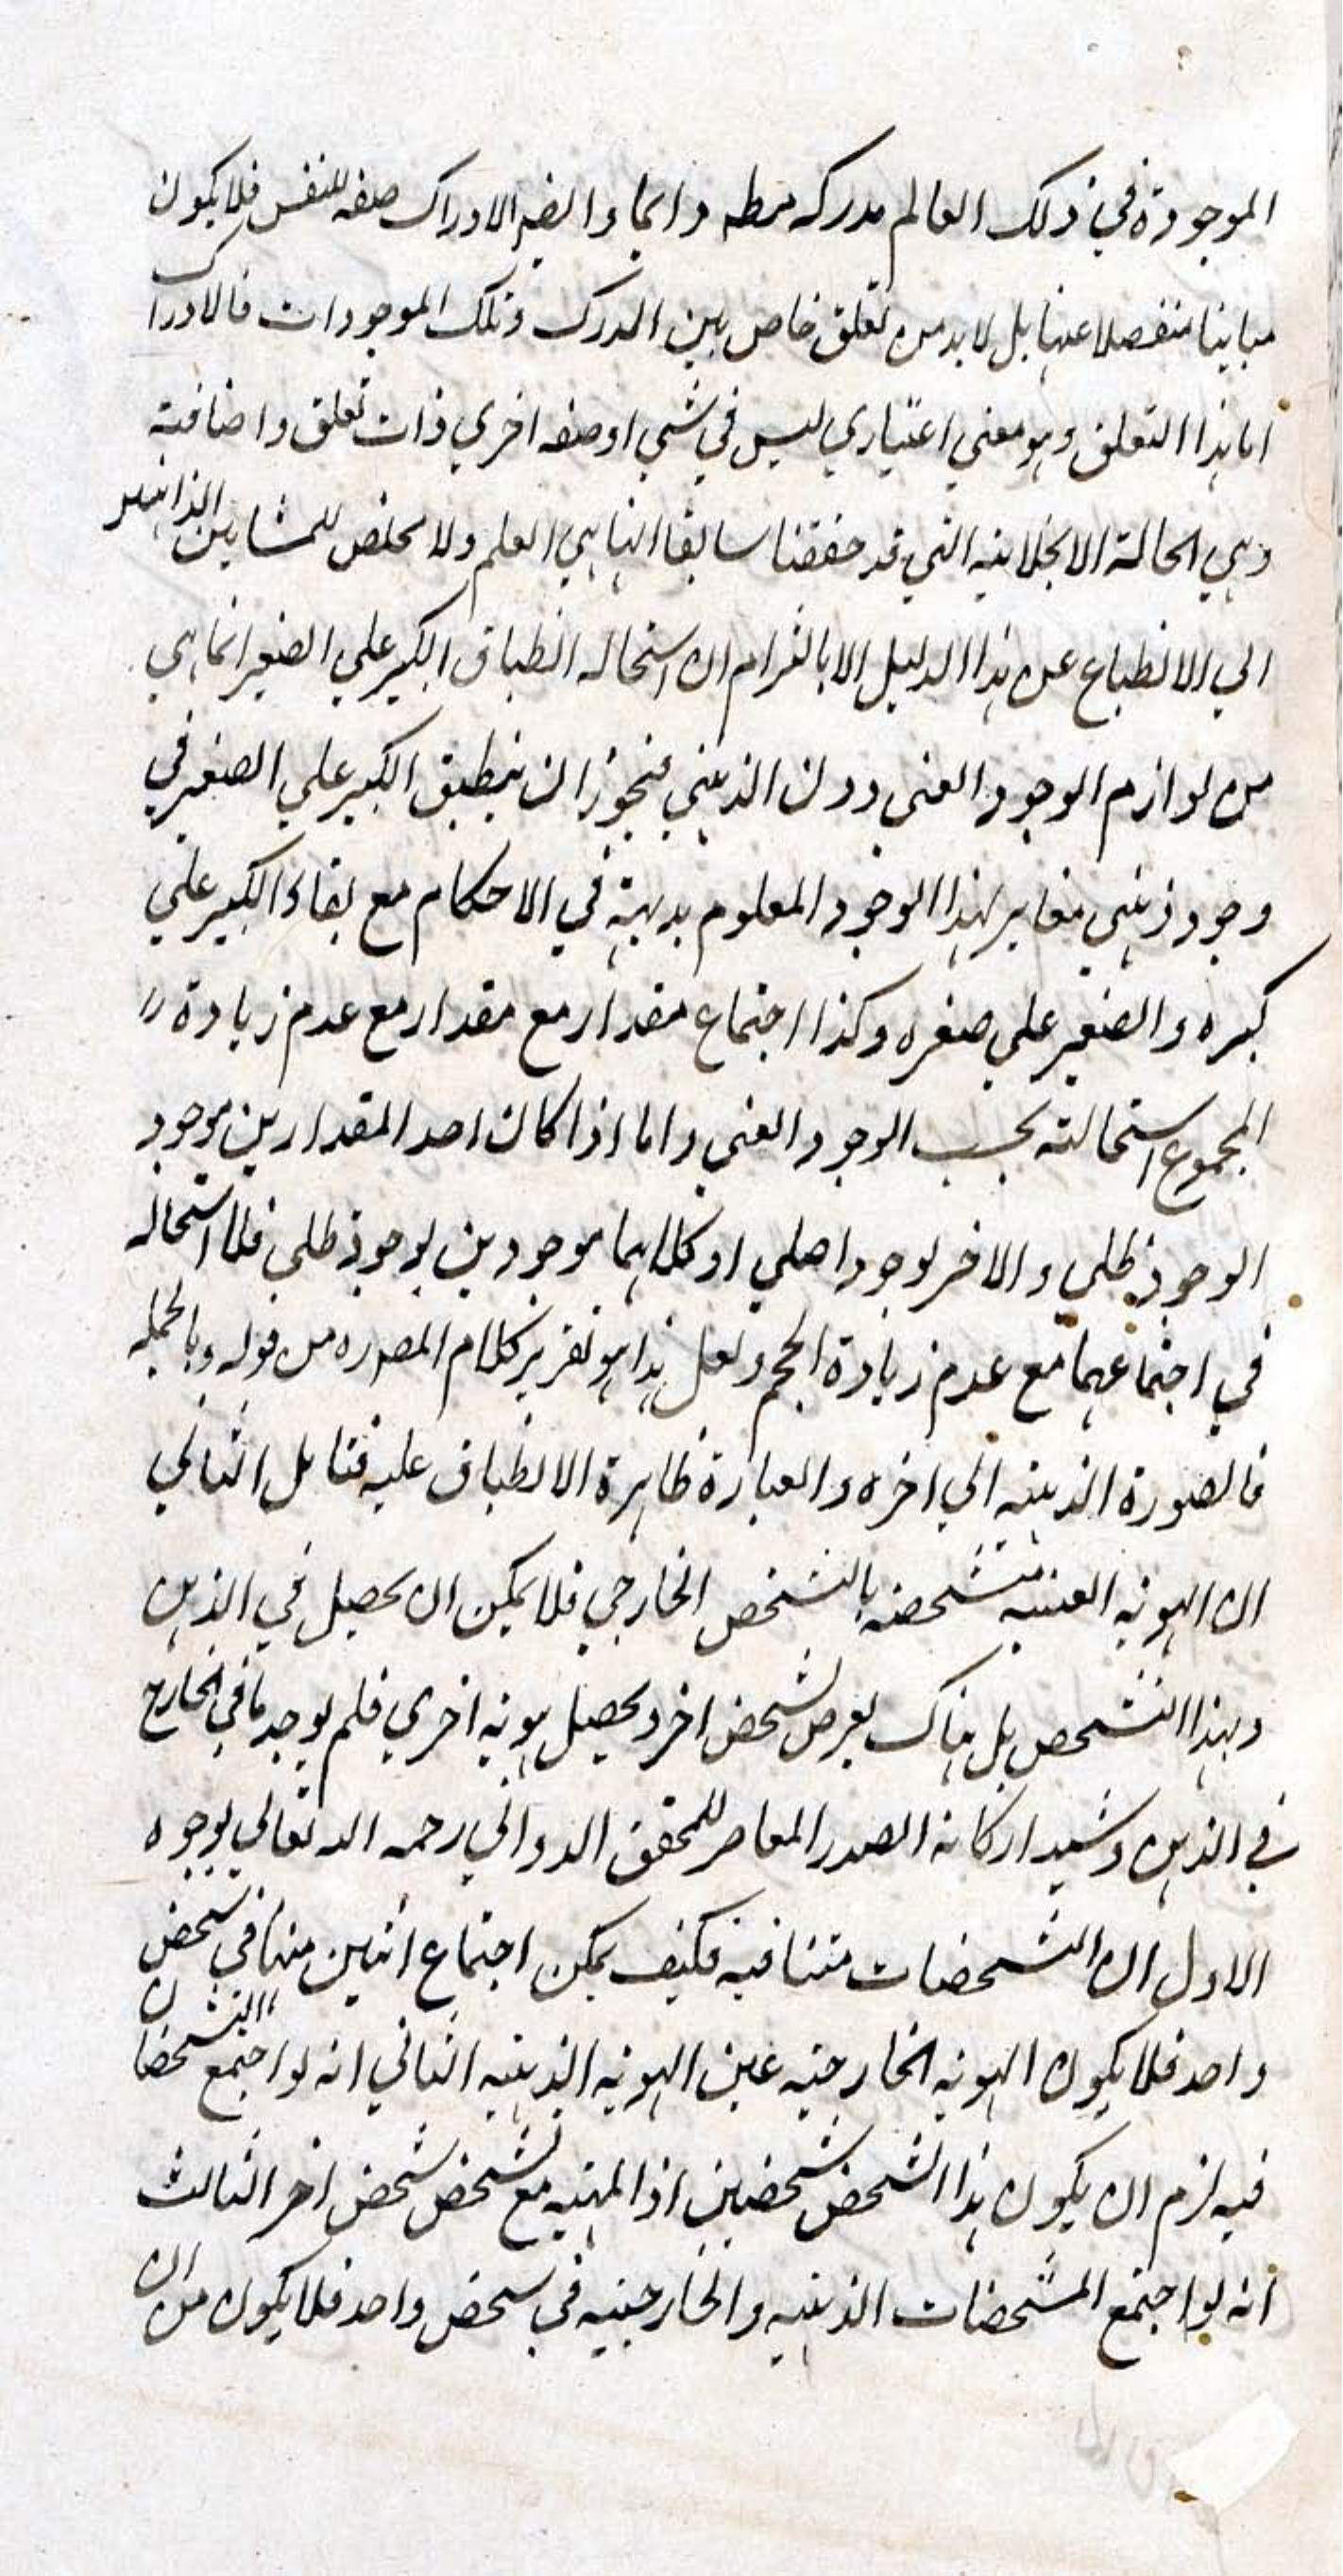 الموجودة في ذلك العالم مدركة دائما وايضا الادراك صفة للنفس فلا يكون
مباينا منفصلا عنها بل لا بد من تعلق خاص بين المدرك وتلك الموجودات فالادراك
اما هذا التعلق وهو معنى اعتباري ليس في شيء او صفة اخرى ذات تعلق واضافية
وهي الحالة الانجلائية التي قد حققنا سابقا انها هي العلم ولا مخلص للمشايين الذاهبين
الي الانطباع عن هذا الدليل الا بالتزام ان استحالة انطباق الكبير علي الصغير انما هي
من لوازم الوجود العيني دون الذهني فيجوز ان ينطبق الكبير علي الصغير في
وجود ذهني مغاير لهذا الوجود المعلوم بديهة في الاحكام مع بقاء الكبير علي
كبره والصغير علي صغره وكذا اجتماع مقدار مع مقدار مع عدم زيادة
المجموع استحالته بحسب الوجود العيني واما اذا كان احد المقدارين موجود
الوجود ظلي والاخر لوجود اصلي او كلاهما موجودين بوجود ظلي فلا استحالة
في اجتماعهما مع عدم زيادة الحجم ولعل هذا هو تقرير كلام المصدره من قوله وبالجملة
فالصورة الذهنية الي اخره والعبارة ظاهرة الانطباق عليه فتامل الثاني
ان الهوية العينية متشخصة بالتشخص الخارجي فلا يمكن ان يحصل في الذهن
وبهذا التشخص بل هناك يعرض تشخص اخر ويحصل هوية اخري فلم يوجد ما في الخارج
في الذهن وشيد اركانه الصدر المعاصر للمحقق الدواني رحمه الله تعالي بوجوه
الاول ان التشخصات متنافية فكيف يمكن اجتماع اثنين منها في شخص
واحد فلا يكون الهوية الخارجية عين الهوية الذهنية الثاني انه لو اجتمع التشخصان
فيه لزم ان يكون هذا الشخص شخصين اذ المهية مع تشخص شخص اخر الثالث
انه لو اجتمع المشخصات الذهنية والخارجية في شخص واحد فلا يكون من ان